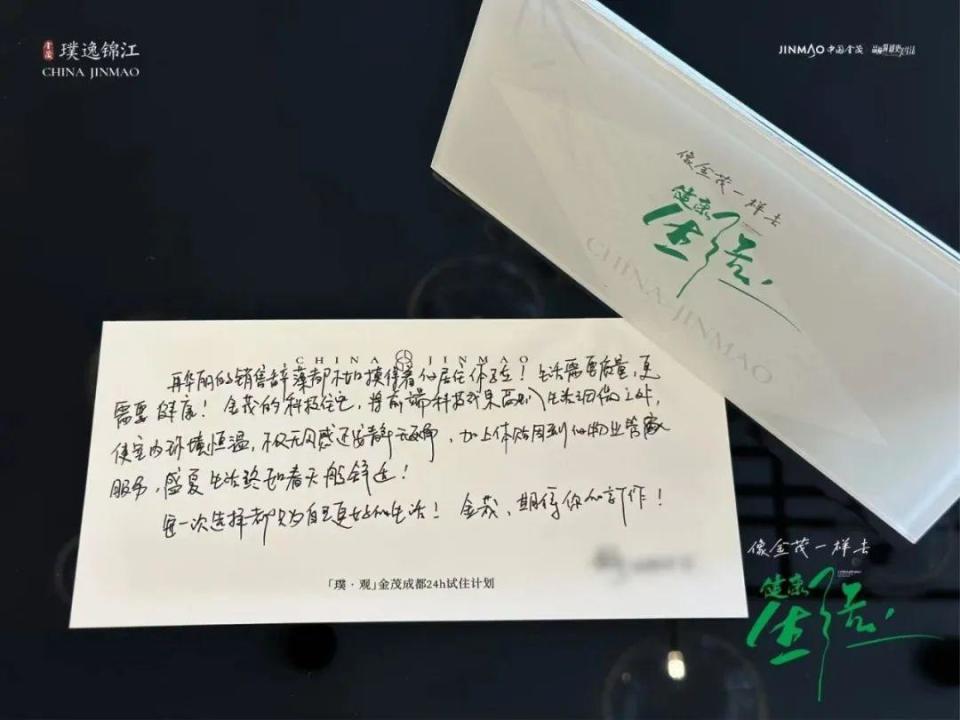 金茂
璞逸锦江
CHINA JINMAO
JINMAO 中国金茂
像金茂一样去
健康
生活
CHINA JINMAO
CHINA JINMAO
再华丽的销售辞藻都不如摸得着的居住体验！生活需要质量，更
需要健康！金茂的科技住宅，将前端科技成果融入生活细微之处，
使室内环境恒温，不仅无风感还安静无噪，加上体贴周到的物业管家
服务，盛夏生活终如春天般舒适！
每一次选择都只为自己更好的生活！金茂，期待你的新作！
「璞·观」金茂成都24h试住计划
像金茂一样去
健康
生活